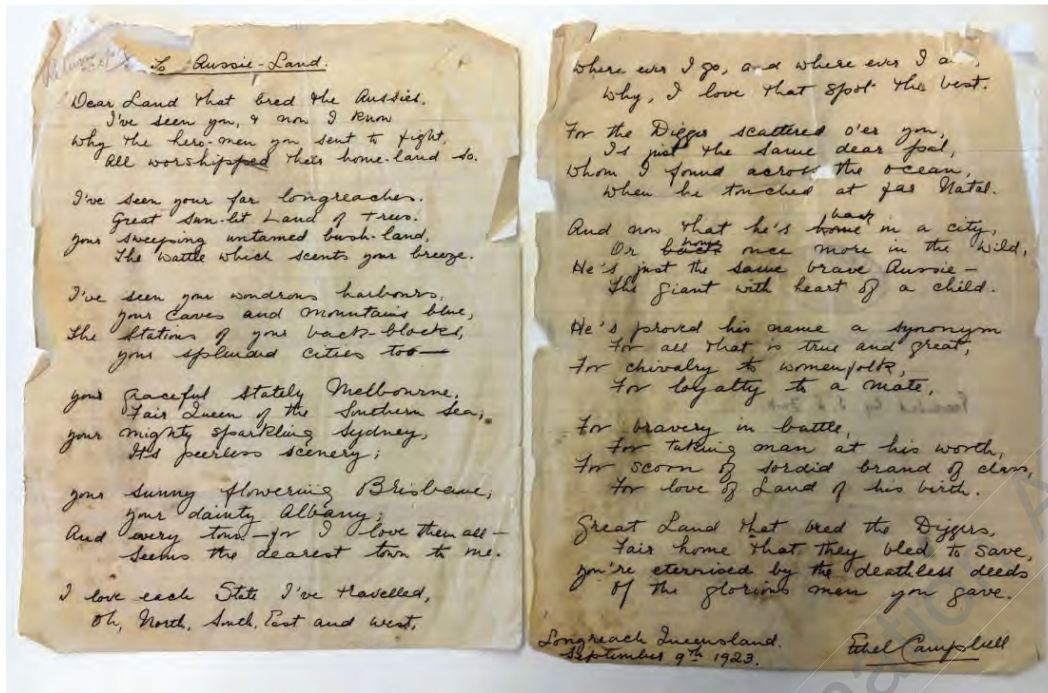 To Aussie-Land.
Dear Land that bred the Aussies,
I've seen you, & now I know
Why the hero-men you sent to fight,
All worshipped their home-land so.
I've seen your far longreaches.
Great sun-lit Land of trees.
Your sweeping untamed bush-land,
The Wattle which scents your breeze.
I've seen your wondrous harbours,
Your caves and mountains blue,
The Stations of your back-blocks,
Your splendid cities too—
Your graceful stately Melbourne,
Fair Queen of the Southern Sea;
Your mighty sparkling Sydney,
Its peerless scenery;
Your sunny flowering Brisbane;
Your dainty Albany;
And every town—for I love them all—
Seems the dearest town to me.
I love each State I've travelled,
Oh, North, South, East and West,
Where ever I go, and where ever I
Why, I love that spot the best.
For the Digger scattered o'er you,
Is just the same dear pal,
Whom I found across the ocean,
When he touched at far Natal.
And now that he's home back in a city,
Or back home once more in the wild,
He's just the same brave Aussie—
The giant with heart of a child.
He's proved his name a synonym
For all that is true and great,
For chivalry to womenfolk,
For loyalty to a mate,
For bravery in battle,
For taking man at his worth,
For scorn of sordid brand of class,
For love of Land of his birth.
Great Land that bred the Diggers,
Fair home that they bled to save,
You're eternised by the deathless deeds
Of the glorious men you gave.
Longreach Queensland.
September 9th 1923.
Ethel Campbell